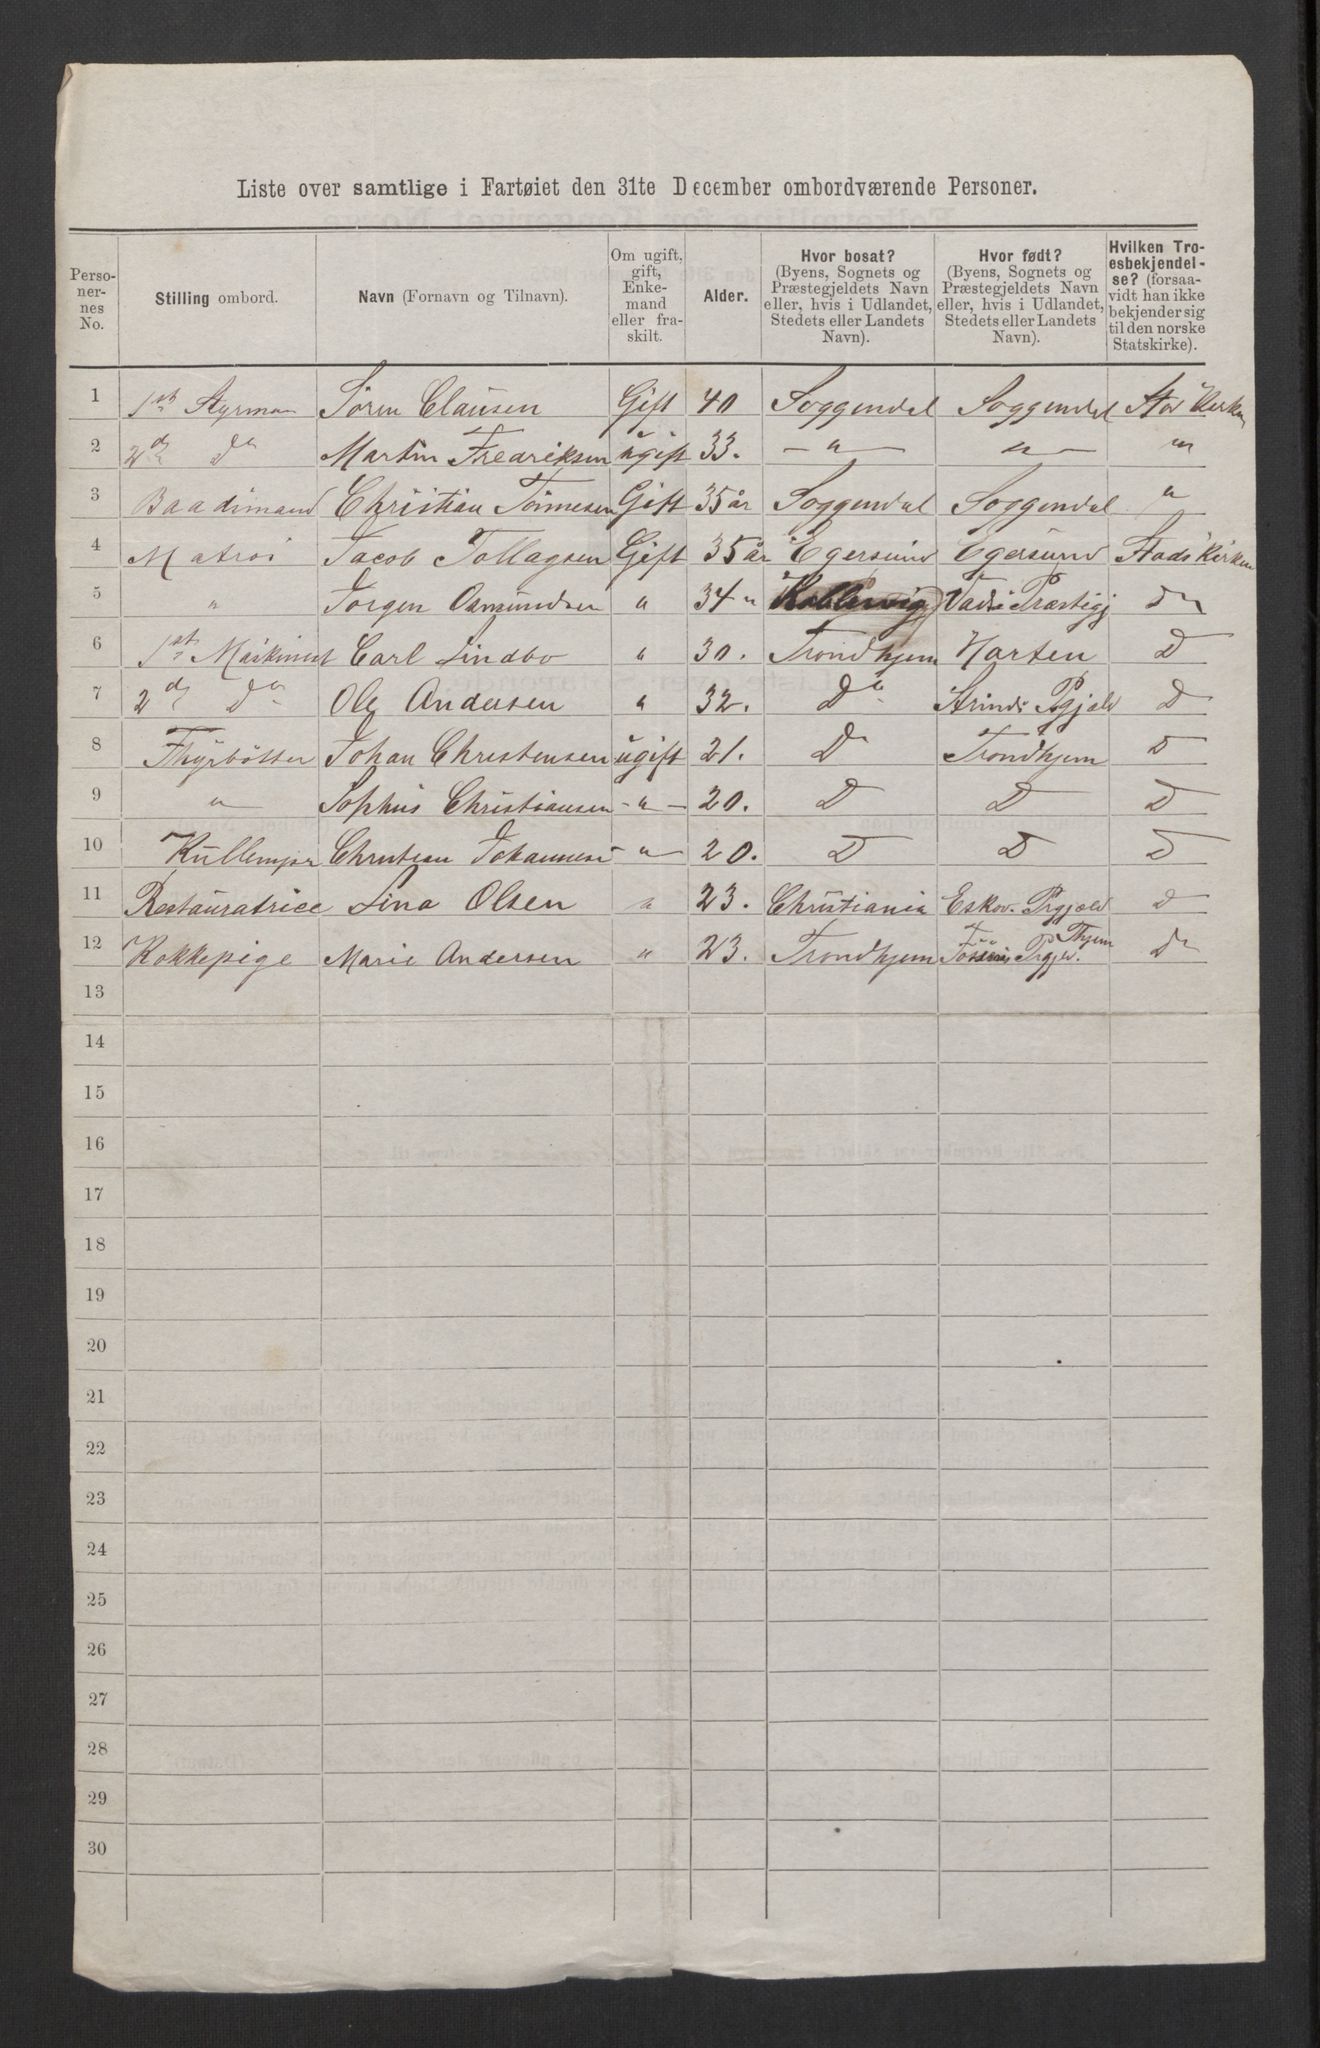 Liste over samtlige i Fartøiet den 31te December ombordværende Personer.
Perso-
ner-
nes
No.
Stilling ombord.
Navn (Fornavn og Tilnavn).
Om ugift,
gift,
Enke-
mand
eller fra-
skilt.
Alder.
Hvor bosat?
(Byens, Sognets og
Præstegjeldets Navn
eller, hvis i Udlandet,
Stedets eller Landets
Navn).
Hvor født?
(Byens, Sognets og
Præstegjeldets Navn
eller, hvis i Udlandet,
Stedets eller Landets
Navn).
Hvilken Tro-
esbekjendel-
se? (forsaa-
vidt han ikke
bekjender sig
til den norske
Statskirke).
1 1st Styrman Sören Clausen Gift 40 Soggendal Soggendal
2 2d Do Martin Fredriksen ugift 33. — " — — " — "
3 Baadsmand Christian Tönnesen Gift 35 år Soggendal Soggendal "
4 Matros Jacob Tollagsen Gift 35 år Egersund Egersund Stads Kirken
5 " Jorgen Asmundsen " 34 " Do
6 1st Maskinist Carl Lindbo " 30. Trondhjem Horten D
7 2d Do Ole Andersen " 32. Do Strinds Pgjeld D
8 Fhyrbötter Johan Christensen ugift 21. D Trondhjem D
9 " Sophus Christiansen - " - 20. D D D
10 Kullemper Christian Johannesen " 20. D D D
11 Restauratrice Lina Olsen " 23. Christiania Prgjeld D
12 Kokkepige Marie Andersen " 23. Trondhjem Prgjed. Thjem Do
13
14
15
16
17
18
19
20
21
22
23
24
25
26
27
28
29
30